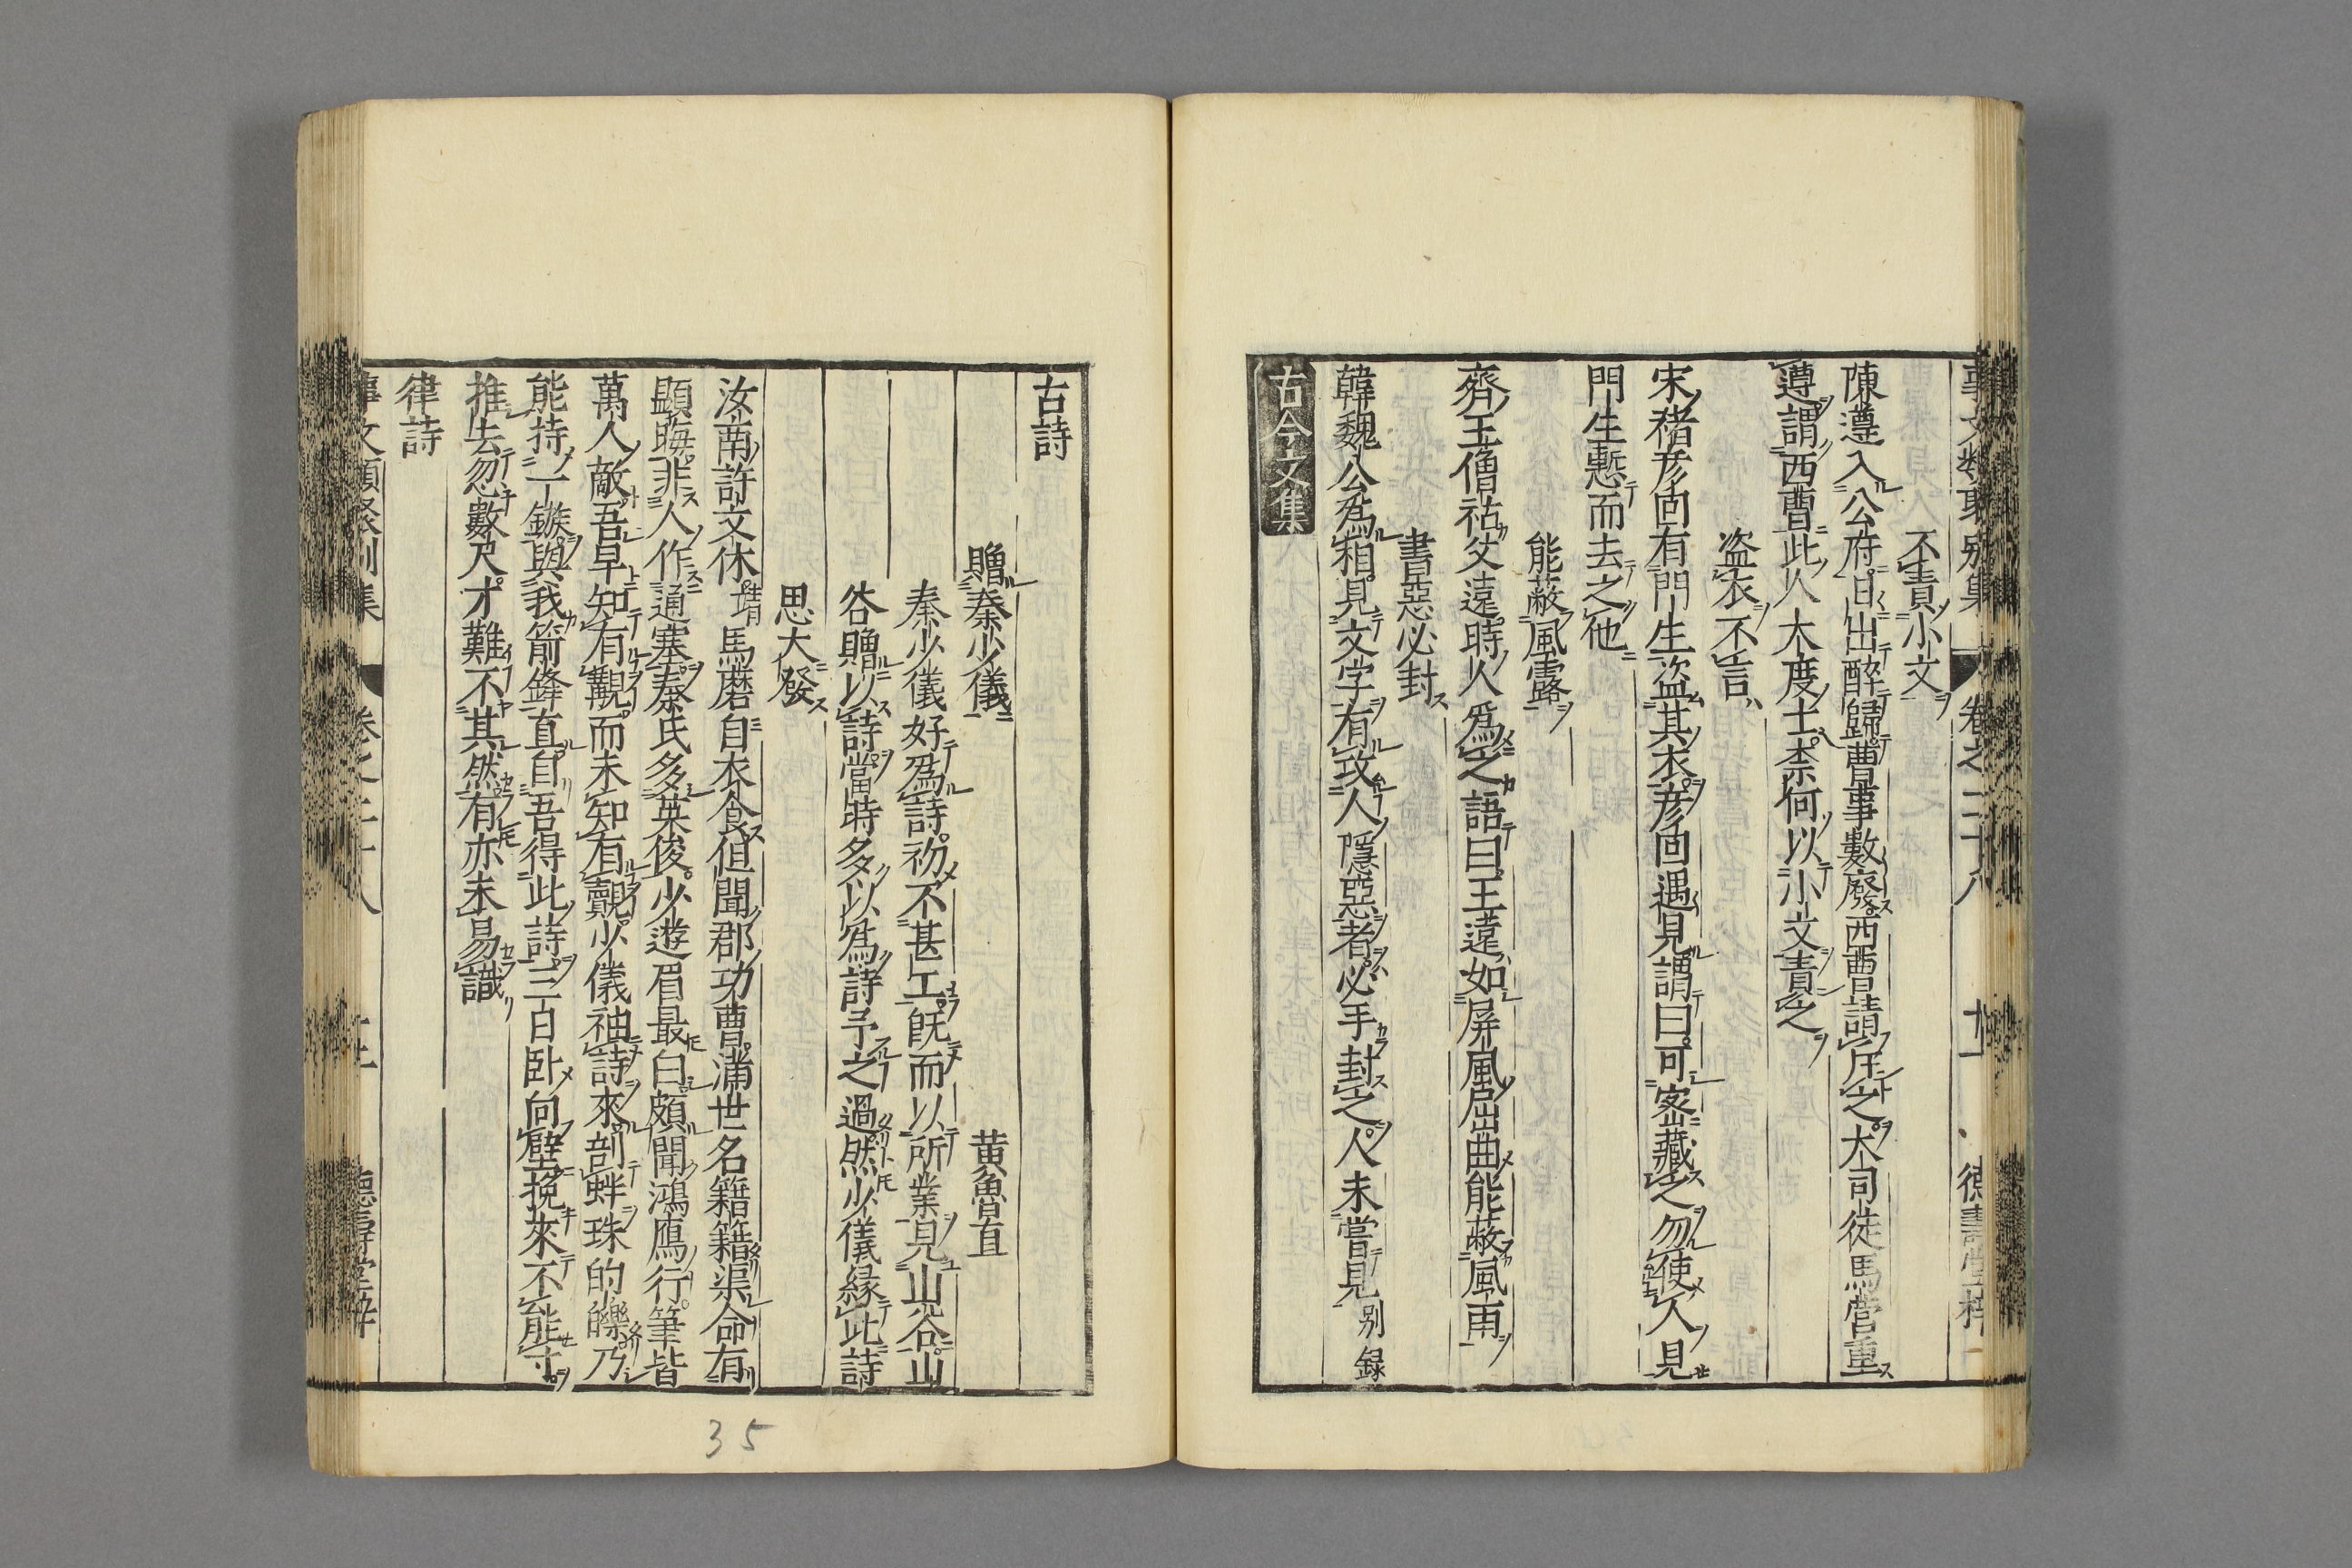 不責小文
陳遵入公府日出醉歸曹事數廢西曹請斥之大司徒馬宮重
遵謂西曹此人大度士柰何以小文責之
盗衣不言
宋褚彦回有門生盗其衣彦回遇見謂曰可密藏之勿使人見
門生慙而去之他
能蔽風露
齊王僧祐父遠時人爲之語曰王遠如屏風屈曲能蔽風雨
書惡必封
韓魏公爲相見文字有攻人隱惡者必手封之人未嘗見别録
古今文集
古詩
贈秦少儀 黄魯直
秦少儀好爲詩初不甚工既而以所業見山谷山
谷贈以詩當時多以爲詩予之過然少儀縁此詩
思大發
汝南許文休馬磨自衣食但聞郡功曹滿世名籍籍渠命有
顯晦非人作通塞秦氏多英俊少遊眉最白頗聞鴻鴈行筆皆
萬人敵吾早知有覯而未知有覿少儀袖詩來剖蚌珠的皪乃
能持一鏃與我箭鋒直自吾得此詩三日卧向壁挽來不能寸
推去忽數尺才難不其然有亦未易識
律詩